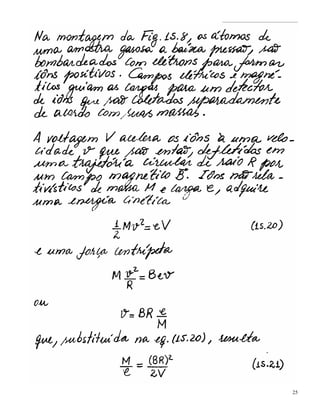 Na montagem da Fig. 15.8, os átomos de
uma amostra gasosa a baixa pressão, são
bombardeados com elétrons para formar
íons positivos. Campos elétricos e magné-
ticos guiam as cargas para um detector
de íons que são coletados separadamente
de acordo com suas massas.
A voltagem V acelera os íons à uma velo-
cidade v que são então, defletidos em
uma trajetória circular de raio R por
um campo magnético B. Íons não rela-
tivísticos de massa M e carga e, adquire
uma energia cinética
1/2 Mv² = eV (15.20)
e uma força centrípeta
M v²/R = Bev
ou
v = BR e/M
que, substituída na eq. (15.20), resulta
M/e = (BR)²/2V (15.21)
25